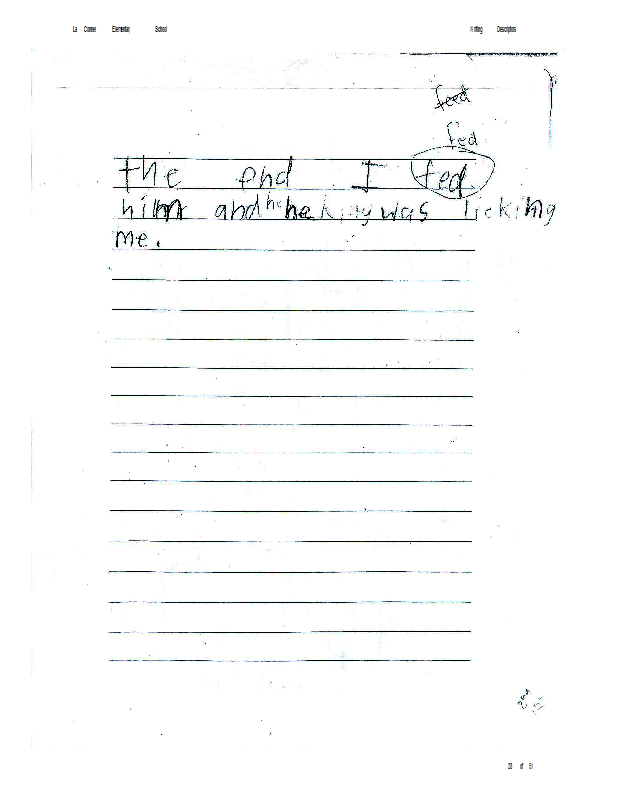 La Conner Elementary School Writing Descriptors
feed
fed
the end I fed
him and he was licking
me.
20 of 51